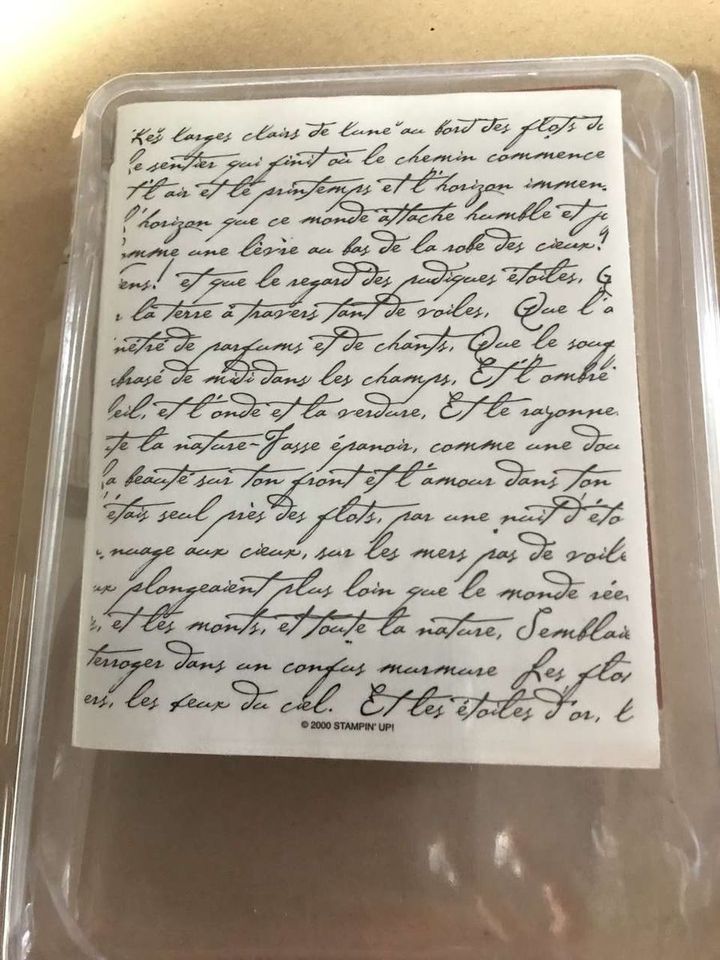 Les larges clairs de lune au bord des flots do
le sentier qui finit où le chemin commence
t l'air et le printemps et l'horizon immen
l'horizon que ce monde attache humble et jo
omme une lèvre au bas de la robe des cieux!
ens! et que le regard des pudiques étoiles, Q
r la terre à travers tant de voiles, Que l'a
nétré de parfums et de chants, Que le souf
brasé de midi dans les champs, Et l'ombre
leil, et l'onde et la verdure, Et le rayonne
te la nature-Fasse épanoir, comme une dou
la beauté sur ton front et l'amour dans ton
étais seul près des flots, par une nuit d'éto
nuage aux cieux, sur les mers pas de voile
ux plongeaient plus loin que le monde rée
s, et les monts, et toute la nature, Semblaie
terroger dans un confus murmure Les flo
ers, les feux du ciel. Et les étoiles d'or, l
© 2000 STAMPIN' UP!